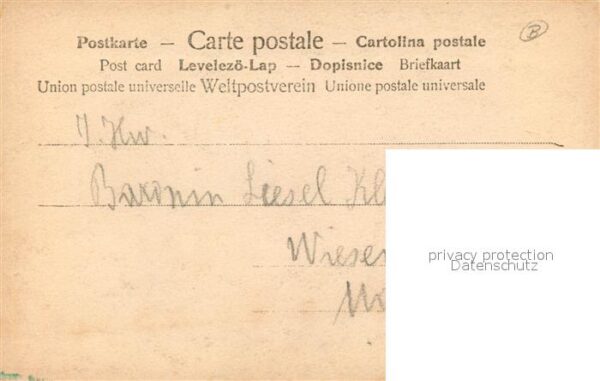 Postkarte – Carte postale – Cartolina postale
Post card Levelező-Lap – Dopisnice Briefkaart
Union postale universelle Weltpostverein Unione postale universale
B
Baronin Liesel Kl
Wiesen
privacy protection
Datenschutz